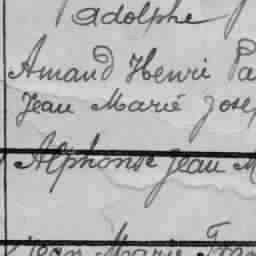 Adolphe
Amand Henri Pa
Jean Marie Josep
Alphonse Jean M
Jean Marie Fran